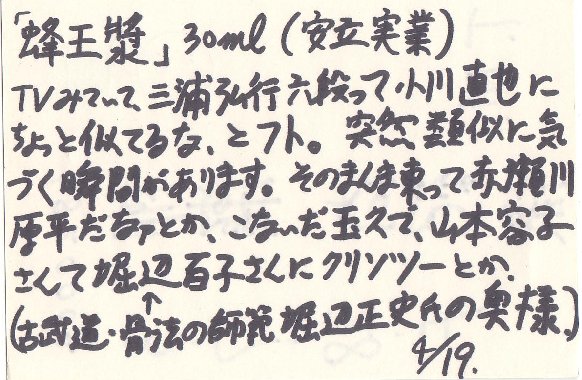 「蜂王漿」30ml（安立実業）
TVみていて、三浦弘行六段って小川直也に
ちょっと似てるな、とフト。突然類似に気
づく瞬間があります。そのまんま東って赤瀬川
原平だなァとか、こないだ玉久で、山本容子
さんて堀辺百子さんにクリソツーとか。
↑
（古武道・骨法の師範 堀辺正史氏の奥様）
4/19.